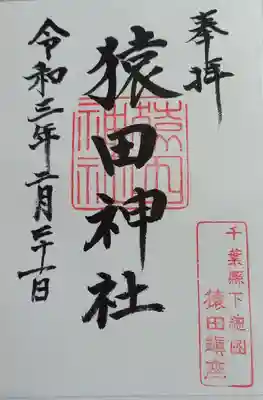 奉拝
猿田神社
猿田
神社
令和三年二月二十一日
千葉縣下總國
猿田鎭座